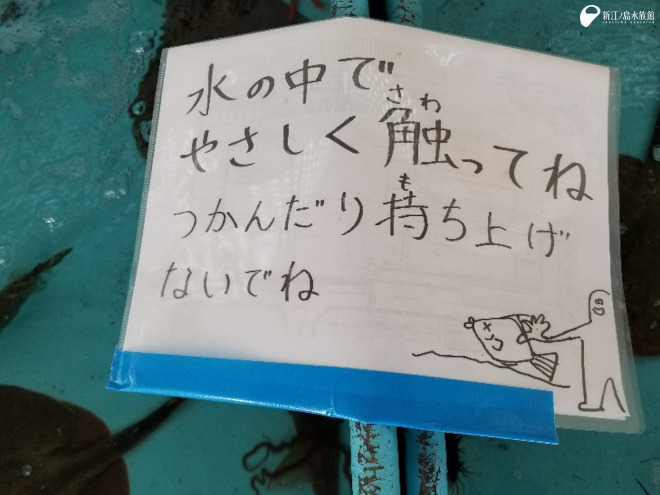 新江ノ島水族館
水の中で
やさしく触ってね
さわ
つかんだり持ち上げ
も
ないでね